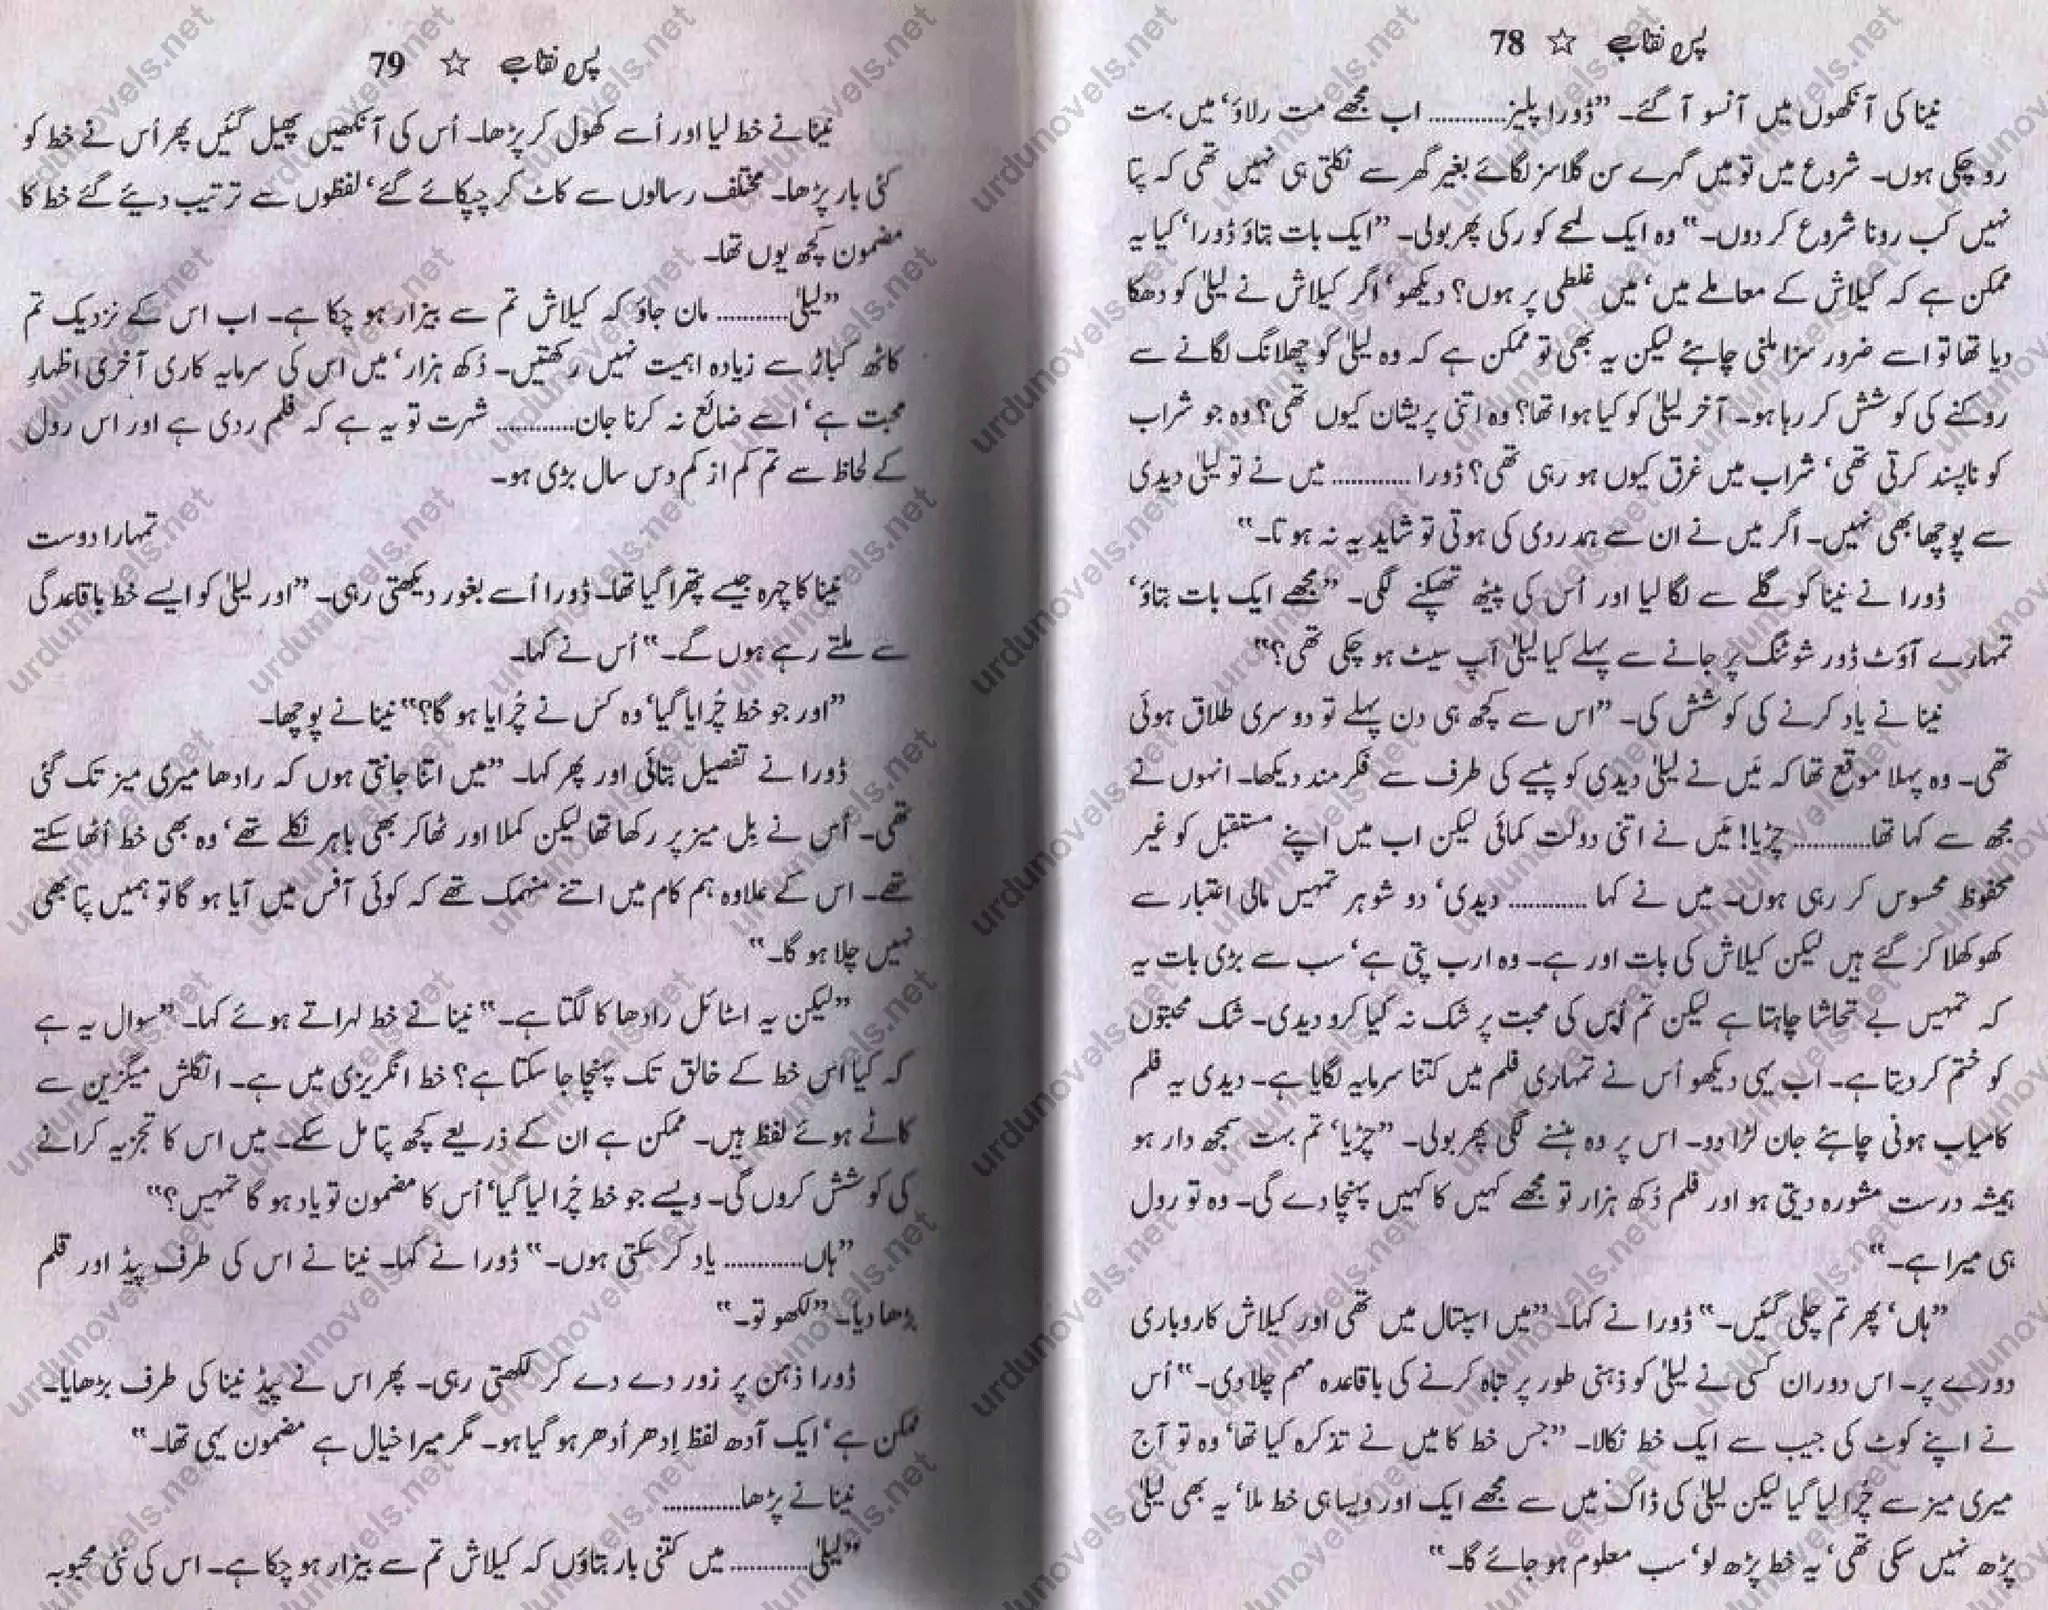 پسِ نقاب ☆ 78
نینا کی آنکھوں میں آنسو آ گئے۔ ”ڈورا پلیز............ اب مجھے مت رلاؤ‘ میں بہت
رو چکی ہوں۔ شروع میں تو میں گہرے سن گلاسز لگائے بغیر گھر سے نکلتی ہی نہیں تھی کہ پتا
نہیں کب رونا شروع کر دوں۔“ وہ ایک لمحے کو رکی پھر بولی۔ ”ایک بات بتاؤ ڈورا‘ کیا یہ
ممکن ہے کہ کیلاش کے معاملے میں‘ میں غلطی پر ہوں؟ دیکھو‘ اگر کیلاش نے لیلیٰ کو دھکا
دیا تھا تو اسے ضرور سزا ملنی چاہئے لیکن یہ بھی تو ممکن ہے کہ وہ لیلیٰ کو چھلانگ لگانے سے
روکنے کی کوشش کر رہا ہو۔ آخر لیلیٰ کو کیا ہوا تھا؟ وہ اتنی پریشان کیوں تھی؟ وہ جو شراب
کو ناپسند کرتی تھی‘ شراب میں غرق کیوں ہو رہی تھی؟ ڈورا ............ میں نے تو لیلیٰ دیدی
سے پوچھا بھی نہیں۔ اگر میں نے ان سے ہمدردی کی ہوتی تو شاید یہ نہ ہوتا۔“
ڈورا نے نینا کو گلے سے لگا لیا اور اُس کی پیٹھ تھپکنے لگی۔ ”مجھے ایک بات بتاؤ‘
تمہارے آؤٹ ڈور شوٹنگ پر جانے سے پہلے کیا لیلیٰ اَپ سیٹ ہو چکی تھی؟“
نینا نے یاد کرنے کی کوشش کی۔ ”اس سے کچھ ہی دن پہلے تو دوسری طلاق ہوئی
تھی۔ وہ پہلا موقع تھا کہ مَیں نے لیلیٰ دیدی کو پیسے کی طرف سے فکرمند دیکھا۔ انہوں نے
مجھ سے کہا تھا............ چڑیا! مَیں نے اتنی دولت کمائی لیکن اب میں اپنے مستقبل کو غیر
محفوظ محسوس کر رہی ہوں۔ میں نے کہا ............ دیدی‘ دو شوہر تمہیں مالی اعتبار سے
کھوکھلا کر گئے ہیں لیکن کیلاش کی بات اور ہے۔ وہ ارب پتی ہے‘ سب سے بڑی بات یہ
کہ تمہیں بے تحاشا چاہتا ہے لیکن تم اُس کی محبت پر شک نہ کیا کرو دیدی۔ شک محبتوں
کو ختم کر دیتا ہے۔ اب یہی دیکھو اُس نے تمہاری فلم میں کتنا سرمایہ لگایا ہے۔ دیدی یہ فلم
کامیاب ہونی چاہئے جان لڑا دو۔ اس پر وہ ہنسنے لگی پھر بولی۔ ”چڑیا‘ تم بہت سمجھ دار ہو
ہمیشہ درست مشورہ دیتی ہو اور فلم دُکھ ہزار تو مجھے کہیں کا کہیں پہنچا دے گی۔ وہ تو رول
ہی میرا ہے۔“
”ہاں‘ پھر تم چلی گئیں۔“ ڈورا نے کہا۔ ”میں اسپتال میں تھی اور کیلاش کاروباری
دورے پر۔ اس دوران کسی نے لیلیٰ کو ذہنی طور پر تباہ کرنے کی باقاعدہ مہم چلا دی۔“ اُس
نے اپنے کوٹ کی جیب سے ایک خط نکالا۔ ”جس خط کا میں نے تذکرہ کیا تھا‘ وہ تو آج
میری میز سے چُرا لیا گیا لیکن لیلیٰ کی ڈاک میں سے مجھے ایک اور ویسا ہی خط ملا‘ یہ بھی لیلیٰ
پڑھ نہیں سکی تھی‘ یہ خط پڑھ لو‘ سب معلوم ہو جائے گا۔“
پسِ نقاب ☆ 79
نینا نے خط لیا اور اُسے کھول کر پڑھا۔ اُس کی آنکھیں پھیل گئیں پھر اُس نے خط کو
کئی بار پڑھا۔ مختلف رسالوں سے کاٹ کر چپکائے گئے‘ لفظوں سے ترتیب دیئے گئے خط کا
مضمون کچھ یوں تھا۔
”لیلیٰ............ مان جاؤ کہ کیلاش تم سے بیزار ہو چکا ہے۔ اب اس کے نزدیک تم
کاٹھ کباڑ سے زیادہ اہمیت نہیں رکھتیں۔ دُکھ ہزار‘ میں اس کی سرمایہ کاری آخری اظہارِ
محبت ہے‘ اسے ضائع نہ کرنا جان............ شہرت تو یہ ہے کہ فلم ردی ہے اور اس رول
کے لحاظ سے تم کم از کم دس سال بڑی ہو۔
تمہارا دوست
نینا کا چہرہ جیسے پتھرا گیا تھا۔ ڈورا اُسے بغور دیکھتی رہی۔ ”اور لیلیٰ کو ایسے خط باقاعدگی
سے ملتے رہے ہوں گے۔“ اُس نے کہا۔
”اور جو خط چُرایا گیا‘ وہ کس نے چُرایا ہو گا؟“ نینا نے پوچھا۔
ڈورا نے تفصیل بتائی اور پھر کہا۔ ”میں اتنا جانتی ہوں کہ رادھا میری میز تک گئی
تھی۔ اُس نے بِل میز پر رکھا تھا لیکن کملا اور ٹھاکر بھی باہر نکلے تھے‘ وہ بھی خط اُٹھا سکتے
تھے۔ اس کے علاوہ ہم کام میں اتنے منہمک تھے کہ کوئی آفس میں آیا ہو گا تو ہمیں پتا بھی
نہیں چلا ہو گا۔“
”لیکن یہ اسٹائل رادھا کا لگتا ہے۔“ نینا نے خط لہراتے ہوئے کہا۔ ”سوال یہ ہے
کہ کیا اس خط کے خالق تک پہنچا جا سکتا ہے؟ خط انگریزی میں ہے۔ انگلش میگزین سے
کاٹے ہوئے لفظ ہیں۔ ممکن ہے ان کے ذریعے کچھ پتا مل سکے۔ میں اس کا تجزیہ کرانے
کی کوشش کروں گی۔ ویسے جو خط چُرا لیا گیا‘ اُس کا مضمون تو یاد ہو گا تمہیں؟“
”ہاں............ یاد کر سکتی ہوں۔“ ڈورا نے کہا۔ نینا نے اس کی طرف پیڈ اور قلم
بڑھا دیا۔ ”لکھو تو۔“
ڈورا ذہن پر زور دے دے کر لکھتی رہی۔ پھر اس نے پیڈ نینا کی طرف بڑھایا۔
ممکن ہے‘ ایک آدھ لفظ اِدھر اُدھر ہو گیا ہو۔ مگر میرا خیال ہے مضمون یہی تھا۔“
نینا نے پڑھا............
”لیلیٰ............ میں کتنی بار بتاؤں کہ کیلاش تم سے بیزار ہو چکا ہے۔ اس کی نئی محبوبہ